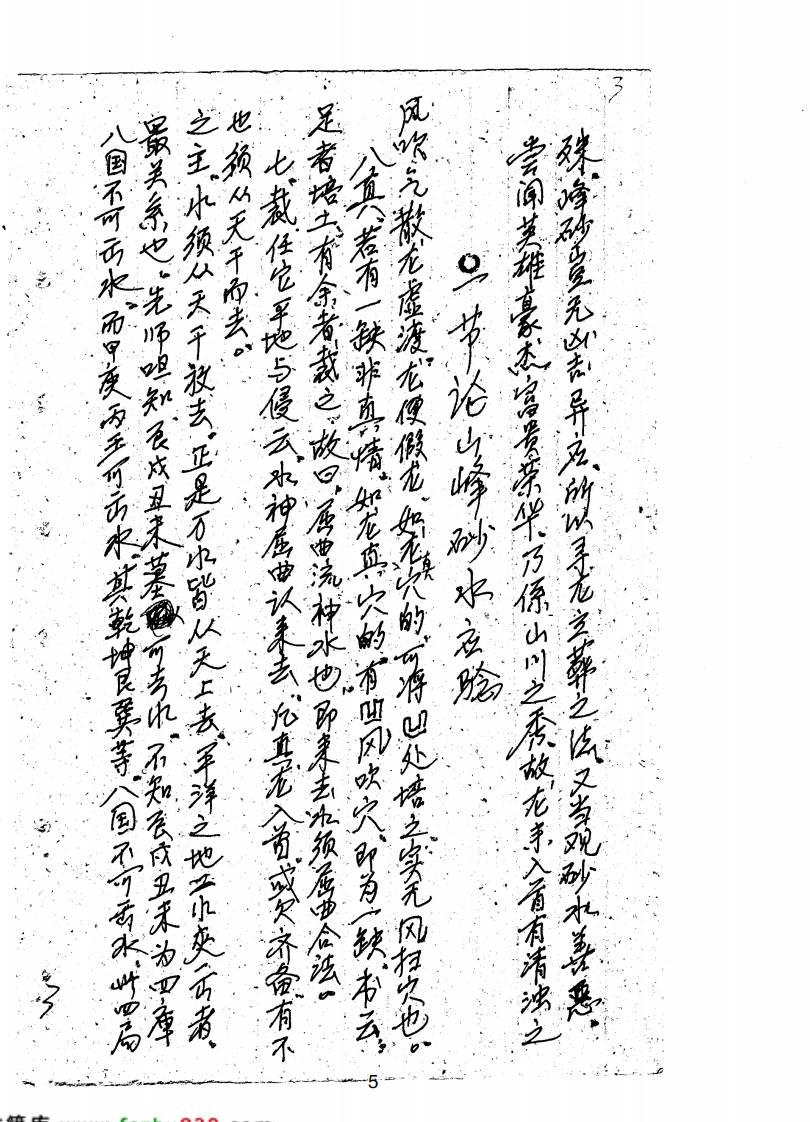 3
殊。峰砂岂无凶吉异应。所以寻龙立葬之法。又当观砂水善恶。
尝闻英雄豪杰。富贵荣华。乃係山川之秀。故龙来入首有清浊之
一节论山峰砂水应验
风吹气散龙虚渡。龙便假龙。如龙真穴的。可将凹处培之实无风扫穴也。
八真。若有一缺非真情。如龙真穴的。有凹风吹穴。即为一缺。书云：
足者培土。有余者裁之。故曰。屈曲流神水也。即来去水须屈曲合法。
七裁。任它平地与侵云。水神屈曲认来去。凡真龙入首。或欠齐备。有不
也须从天干而去。
之主。水须从天干放去。正是万水皆从天上去。平洋之地二水夹出者。
最关系也。先师咀知辰戌丑未墓可去水。不知辰戌丑未为四库
八国不可出水。而甲庚丙壬可出水。其乾坤艮巽等。八国不可出水。此四局
3
5